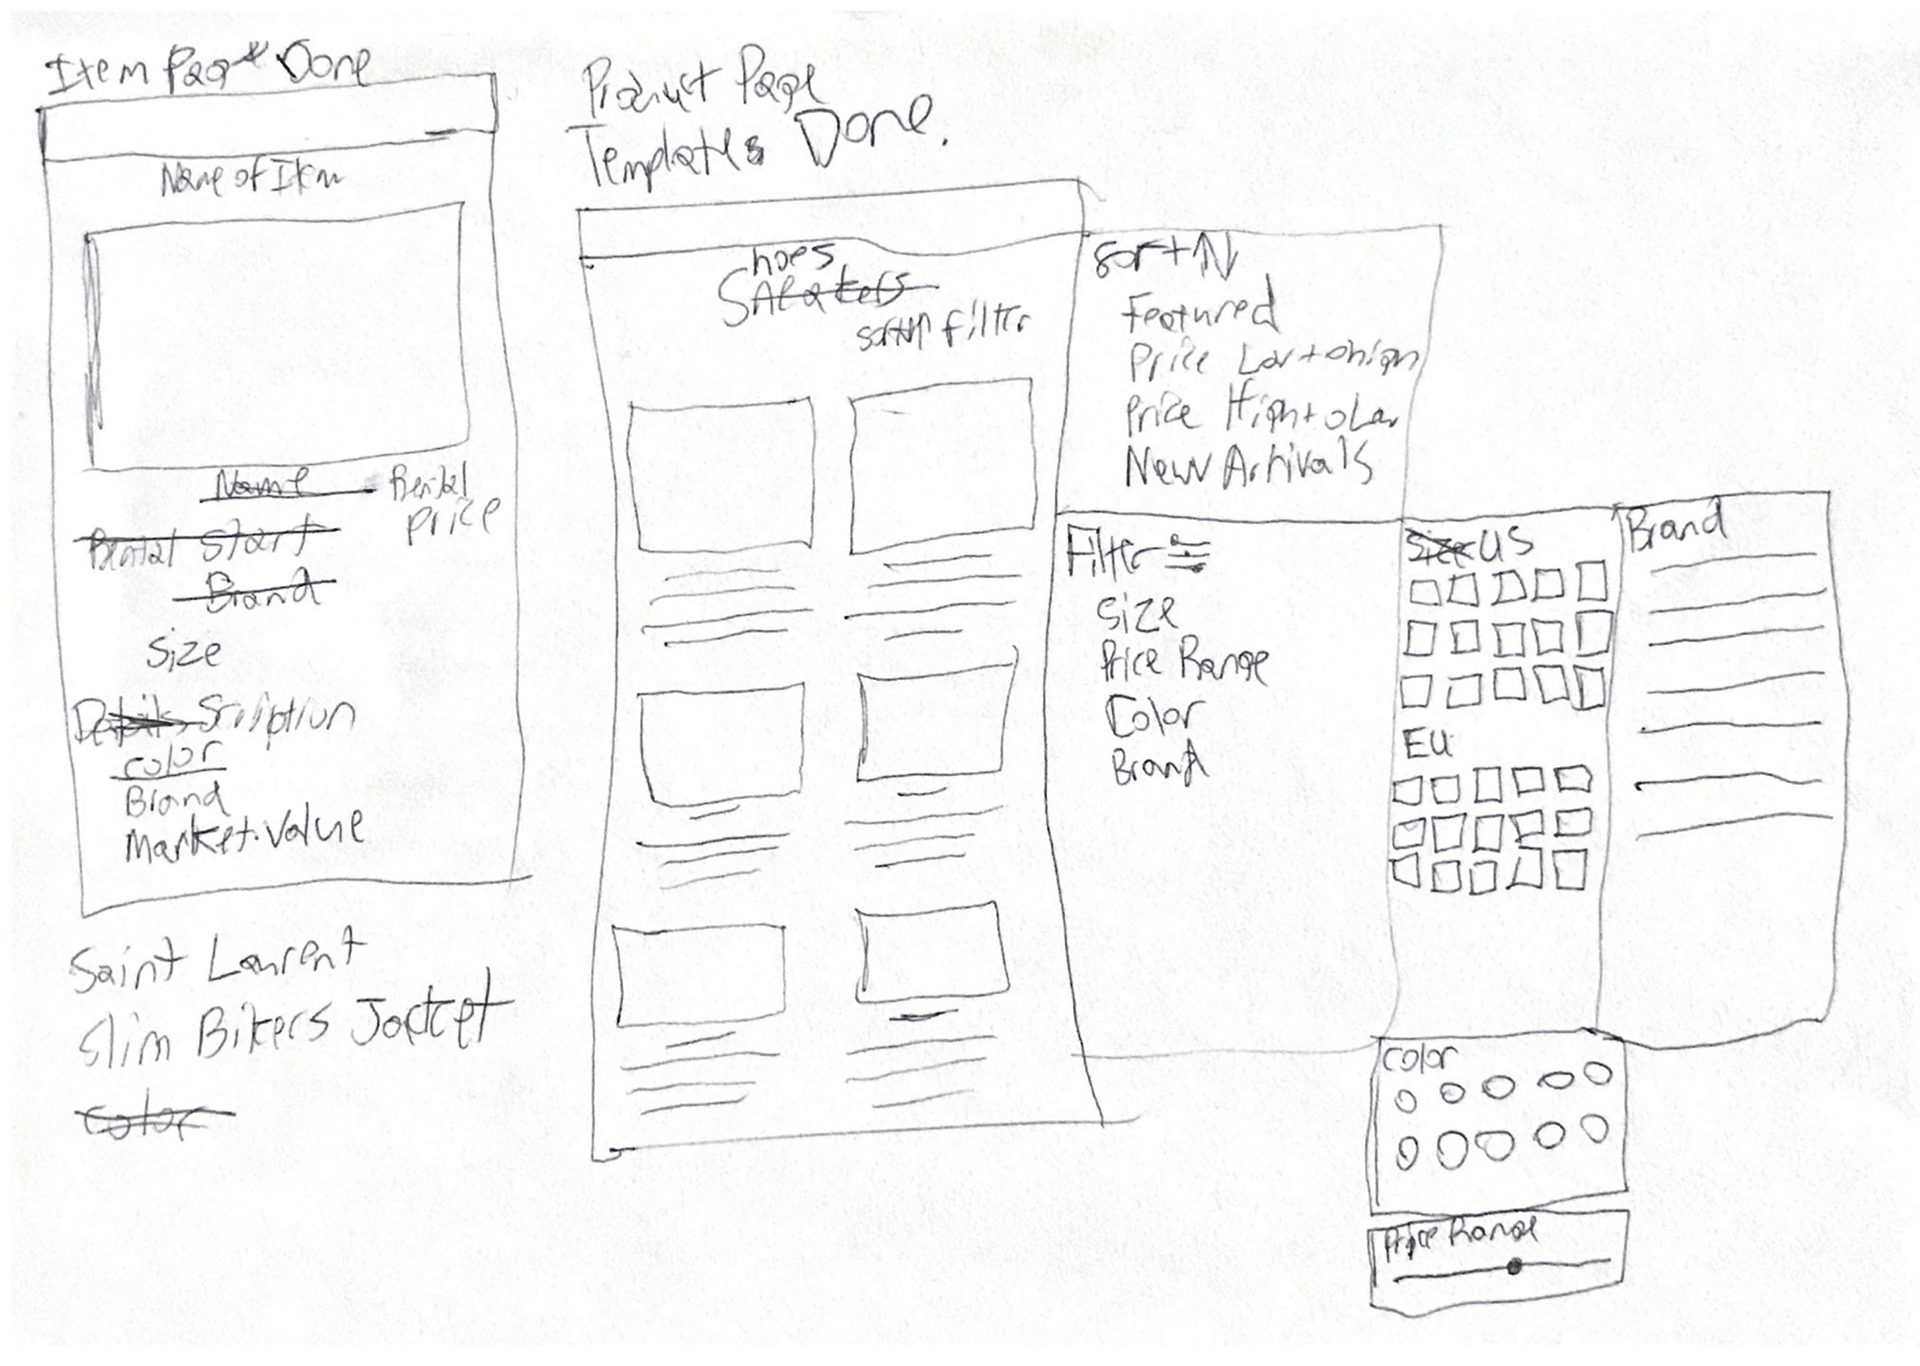 Item Page Done
Name of Item
Name
Rental
Price
Rental Start
Brand
Size
Details Scription
Color
Brand
Market Value
Saint Laurent
Slim Bikers Jacket
Color
Product Page
Templates Done.
hoes
Sneakers
sort↑↓ filter
Sort↑↓
Featured
Price Low to high
Price High to Low
New Arrivals
Filter
Size
Price Range
Color
Brand
Size US
EU
Brand
Color
Price Range